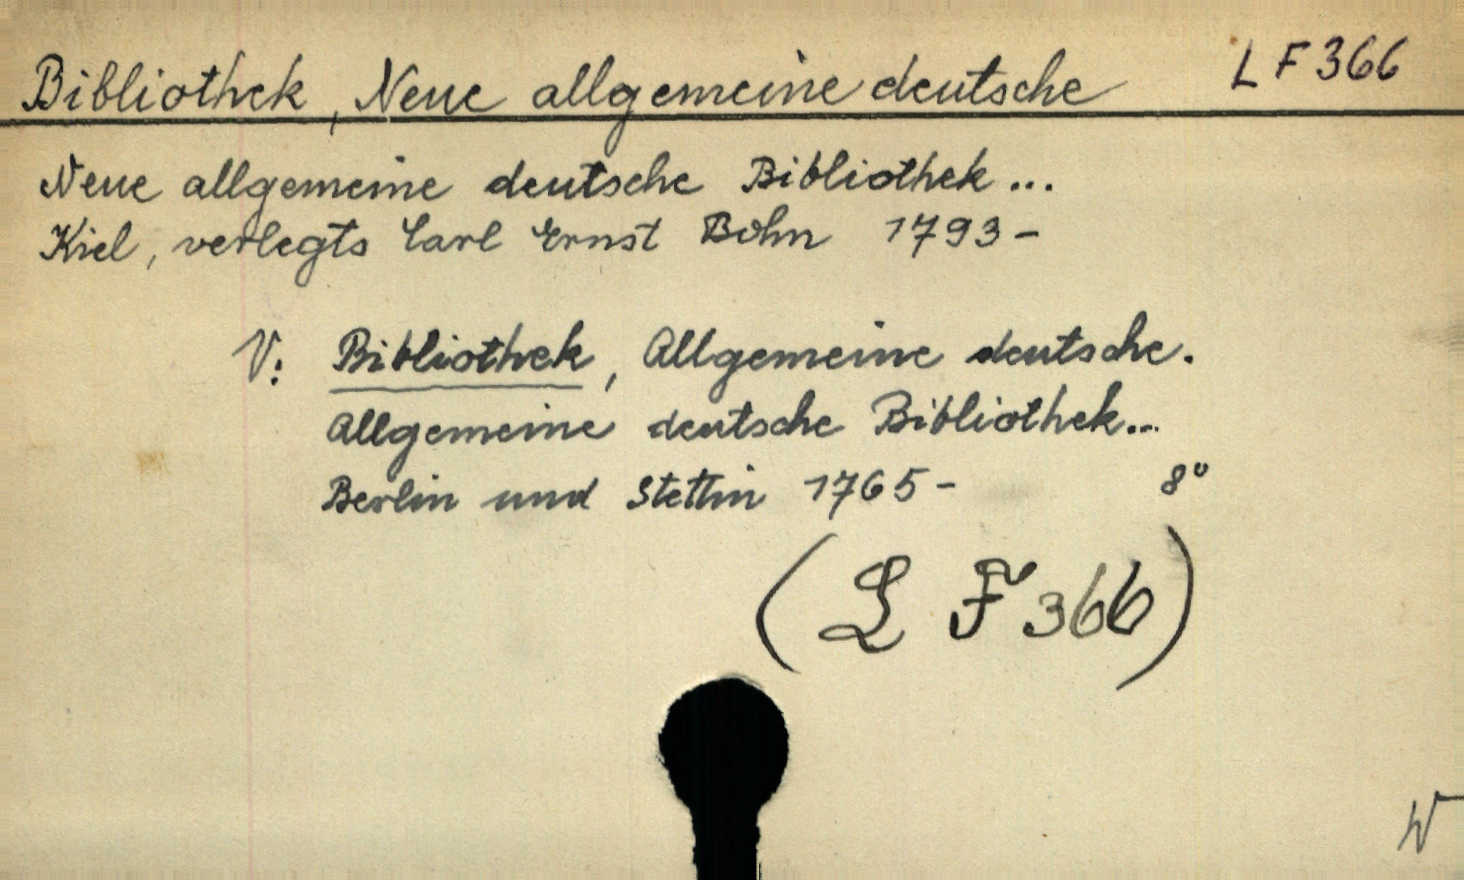 Bibliothek, Neue allgemeine deutsche LF 366
Neue allgemeine deutsche Bibliothek...
Kiel, verlegts Carl Ernst Bohn 1793-
V: Bibliothek, Allgemeine deutsche.
Allgemeine deutsche Bibliothek...
Berlin und Stettin 1765- 8°
(L F 366)
W